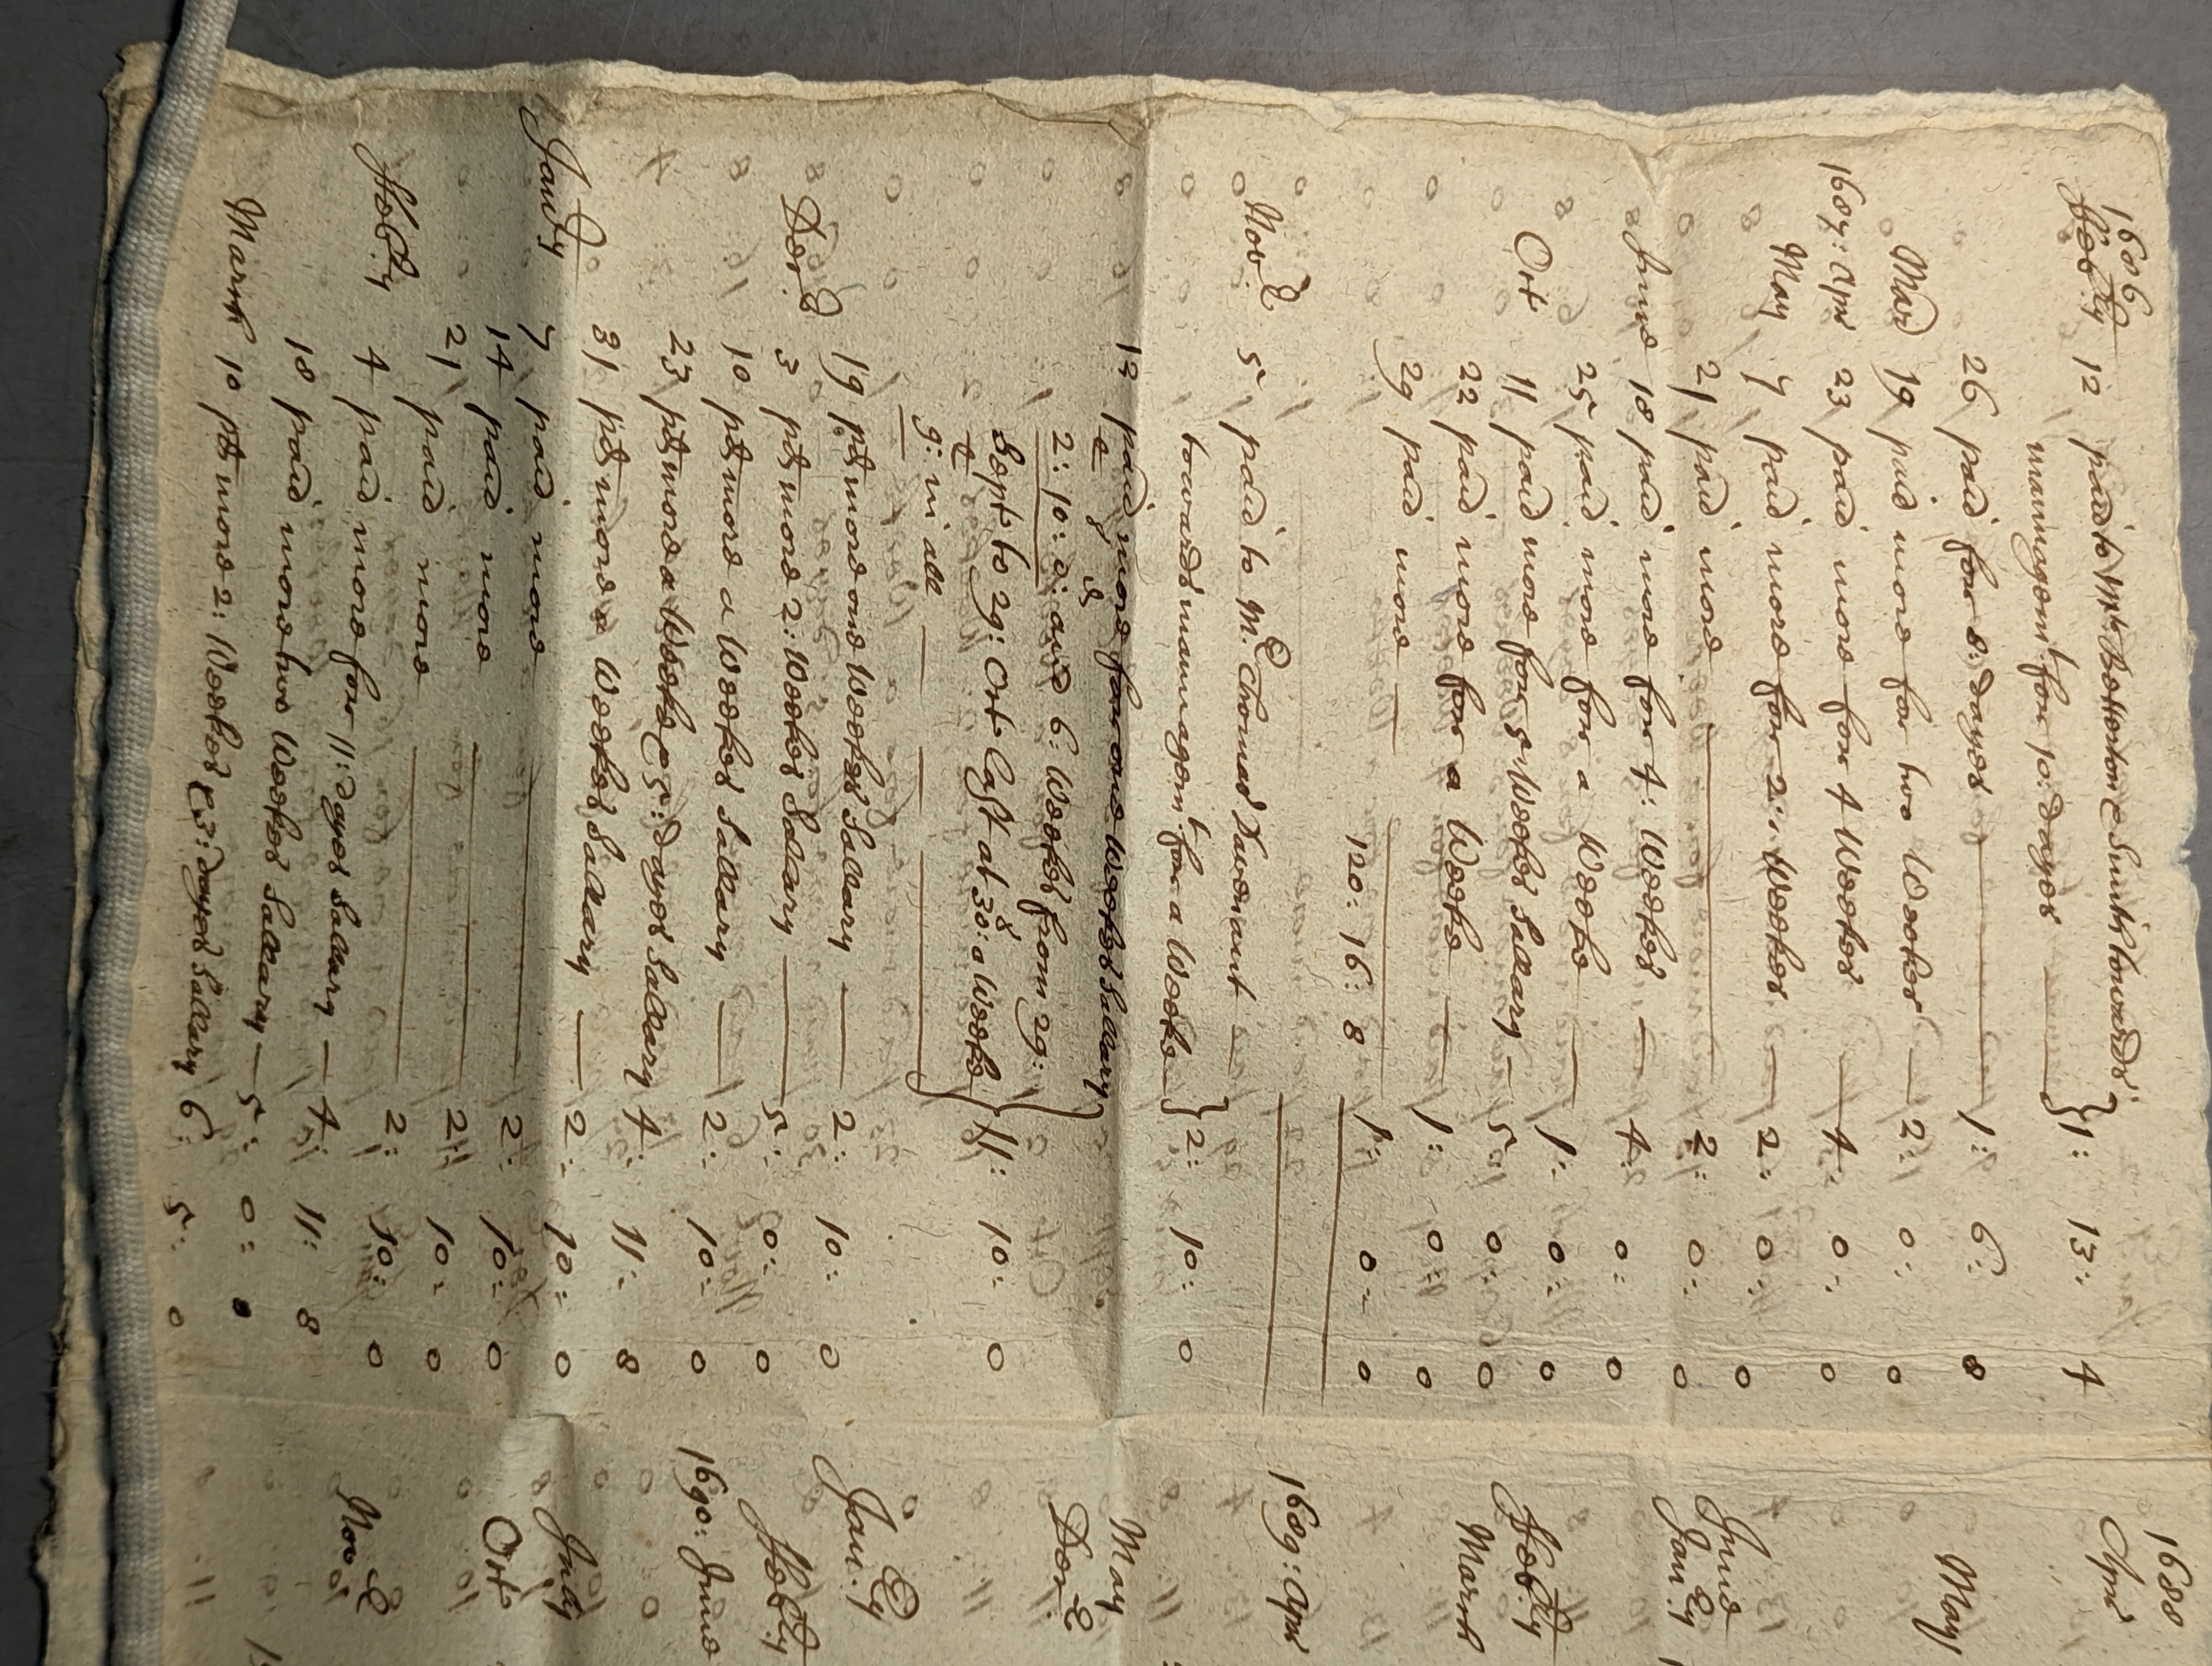 1686
Feb:ry 12 paid to Mr Betterton & Smith towards
managemt for 10: dayes } 1: 13: 4
26 paid for 8: dayes 1: 6: 8
Mar 19 paid more for two Weekes 2: 0: 0
1687: Apr 23 paid more for 4 Weekes 4: 0: 0
May 7 paid more for 2: Weekes 2: 0: 0
21 paid more 2: 0: 0
June 18 paid more for 4: Weekes 4: 0: 0
25 paid more for a Weeke 1: 0: 0
Oct 11 paid more for 5 Weekes Sallary 5: 0: 0
22 paid more for a Weeke 1: 0: 0
29 paid more 1: 0: 0
120: 16: 8
Nov:r 5 paid to Mr Thomas Davenant
towards managemt for a Weeke } 2: 10: 0
12 paid more for one Weekes Sallary
2: 10: 0: and 6: Weekes from 29:
Sept to 29: Oct: last at 30s: a Weeke } 11: 10: 0
9: in all
19 pd more one Weekes Sallary 2: 10: 0
Dec:r 3 pd more 2: Weekes Sallary 5: 0: 0
10 pd more a Weekes Sallary 2: 10: 0
23 pd more a Weeke & 5: dayes Sallary 4: 11: 8
31 pd more a Weekes Sallary 2: 10: 0
Jan:ry 7 paid more 2: 10: 0
14 paid more 2: 10: 0
21 paid more 2: 10: 0
Feb:ry 4 paid more for 11: dayes Sallary 4: 11: 8
18 paid more two Weekes Sallary 5: 0: 0
March 10 pd more 2: Weekes & 3: dayes Sallary 6: 5: 0
1688
Apr
May
June
Jan:ry
Feb:ry
March
1689: Apr
May
Dec:r
Jan:ry
Feb:ry
1690: June
July
Oct
Nov:r